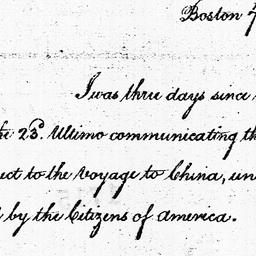 Boston
I was three days since
23d. Ultimo communicating th
ect to the Voyage to China, un
by the Citizens of America.